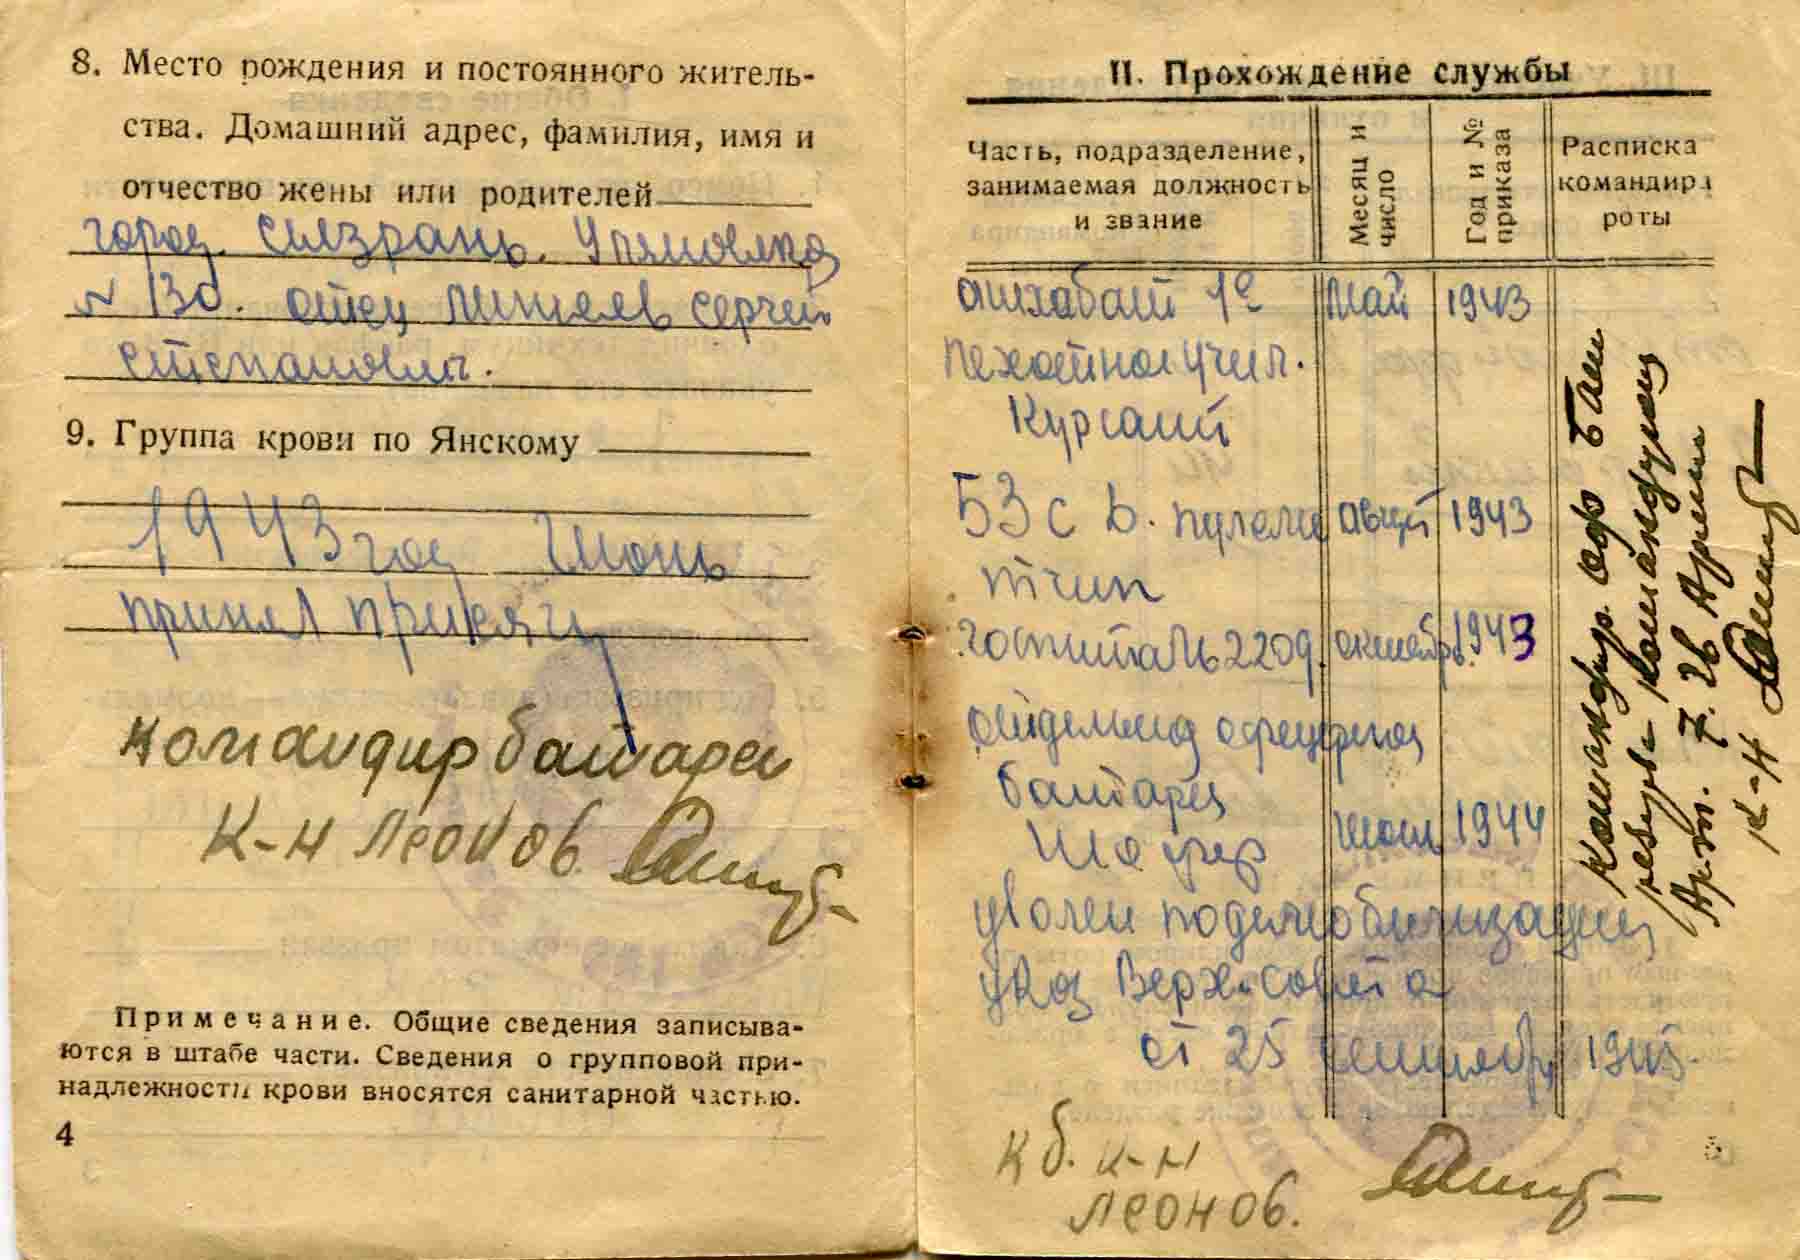 8. Место рождения и постоянного житель-
ства. Домашний адрес, фамилия, имя и
отчество жены или родителей
город Сызрань.
№ 130. отец Сергей
Степанович.
9. Группа крови по Янскому
1943 год Июнь
принял присягу
командир батареи
к-н Леонов.
Примечание. Общие сведения записыва-
ются в штабе части. Сведения о групповой при-
надлежности крови вносятся санитарной частью.
4
II. Прохождение службы
Часть, подразделение, занимаемая должность и звание
Месяц и число
Год и № приказа
Расписка командира роты
ашхабат 1е Май 1943
пехотное учил.
Курсант
53 с б. пулеме август 1943
тчик
госпиталь 2209. октябрь. 1943
отдельная
батарея
Шофер Июль 1944
уволен по димобилизации
указ Верх. совета
от 25 сентября 1945.
Командир офр бат
резерва
Арт. 7. гв Армии
к-н
Кб. к-н
Леонов.